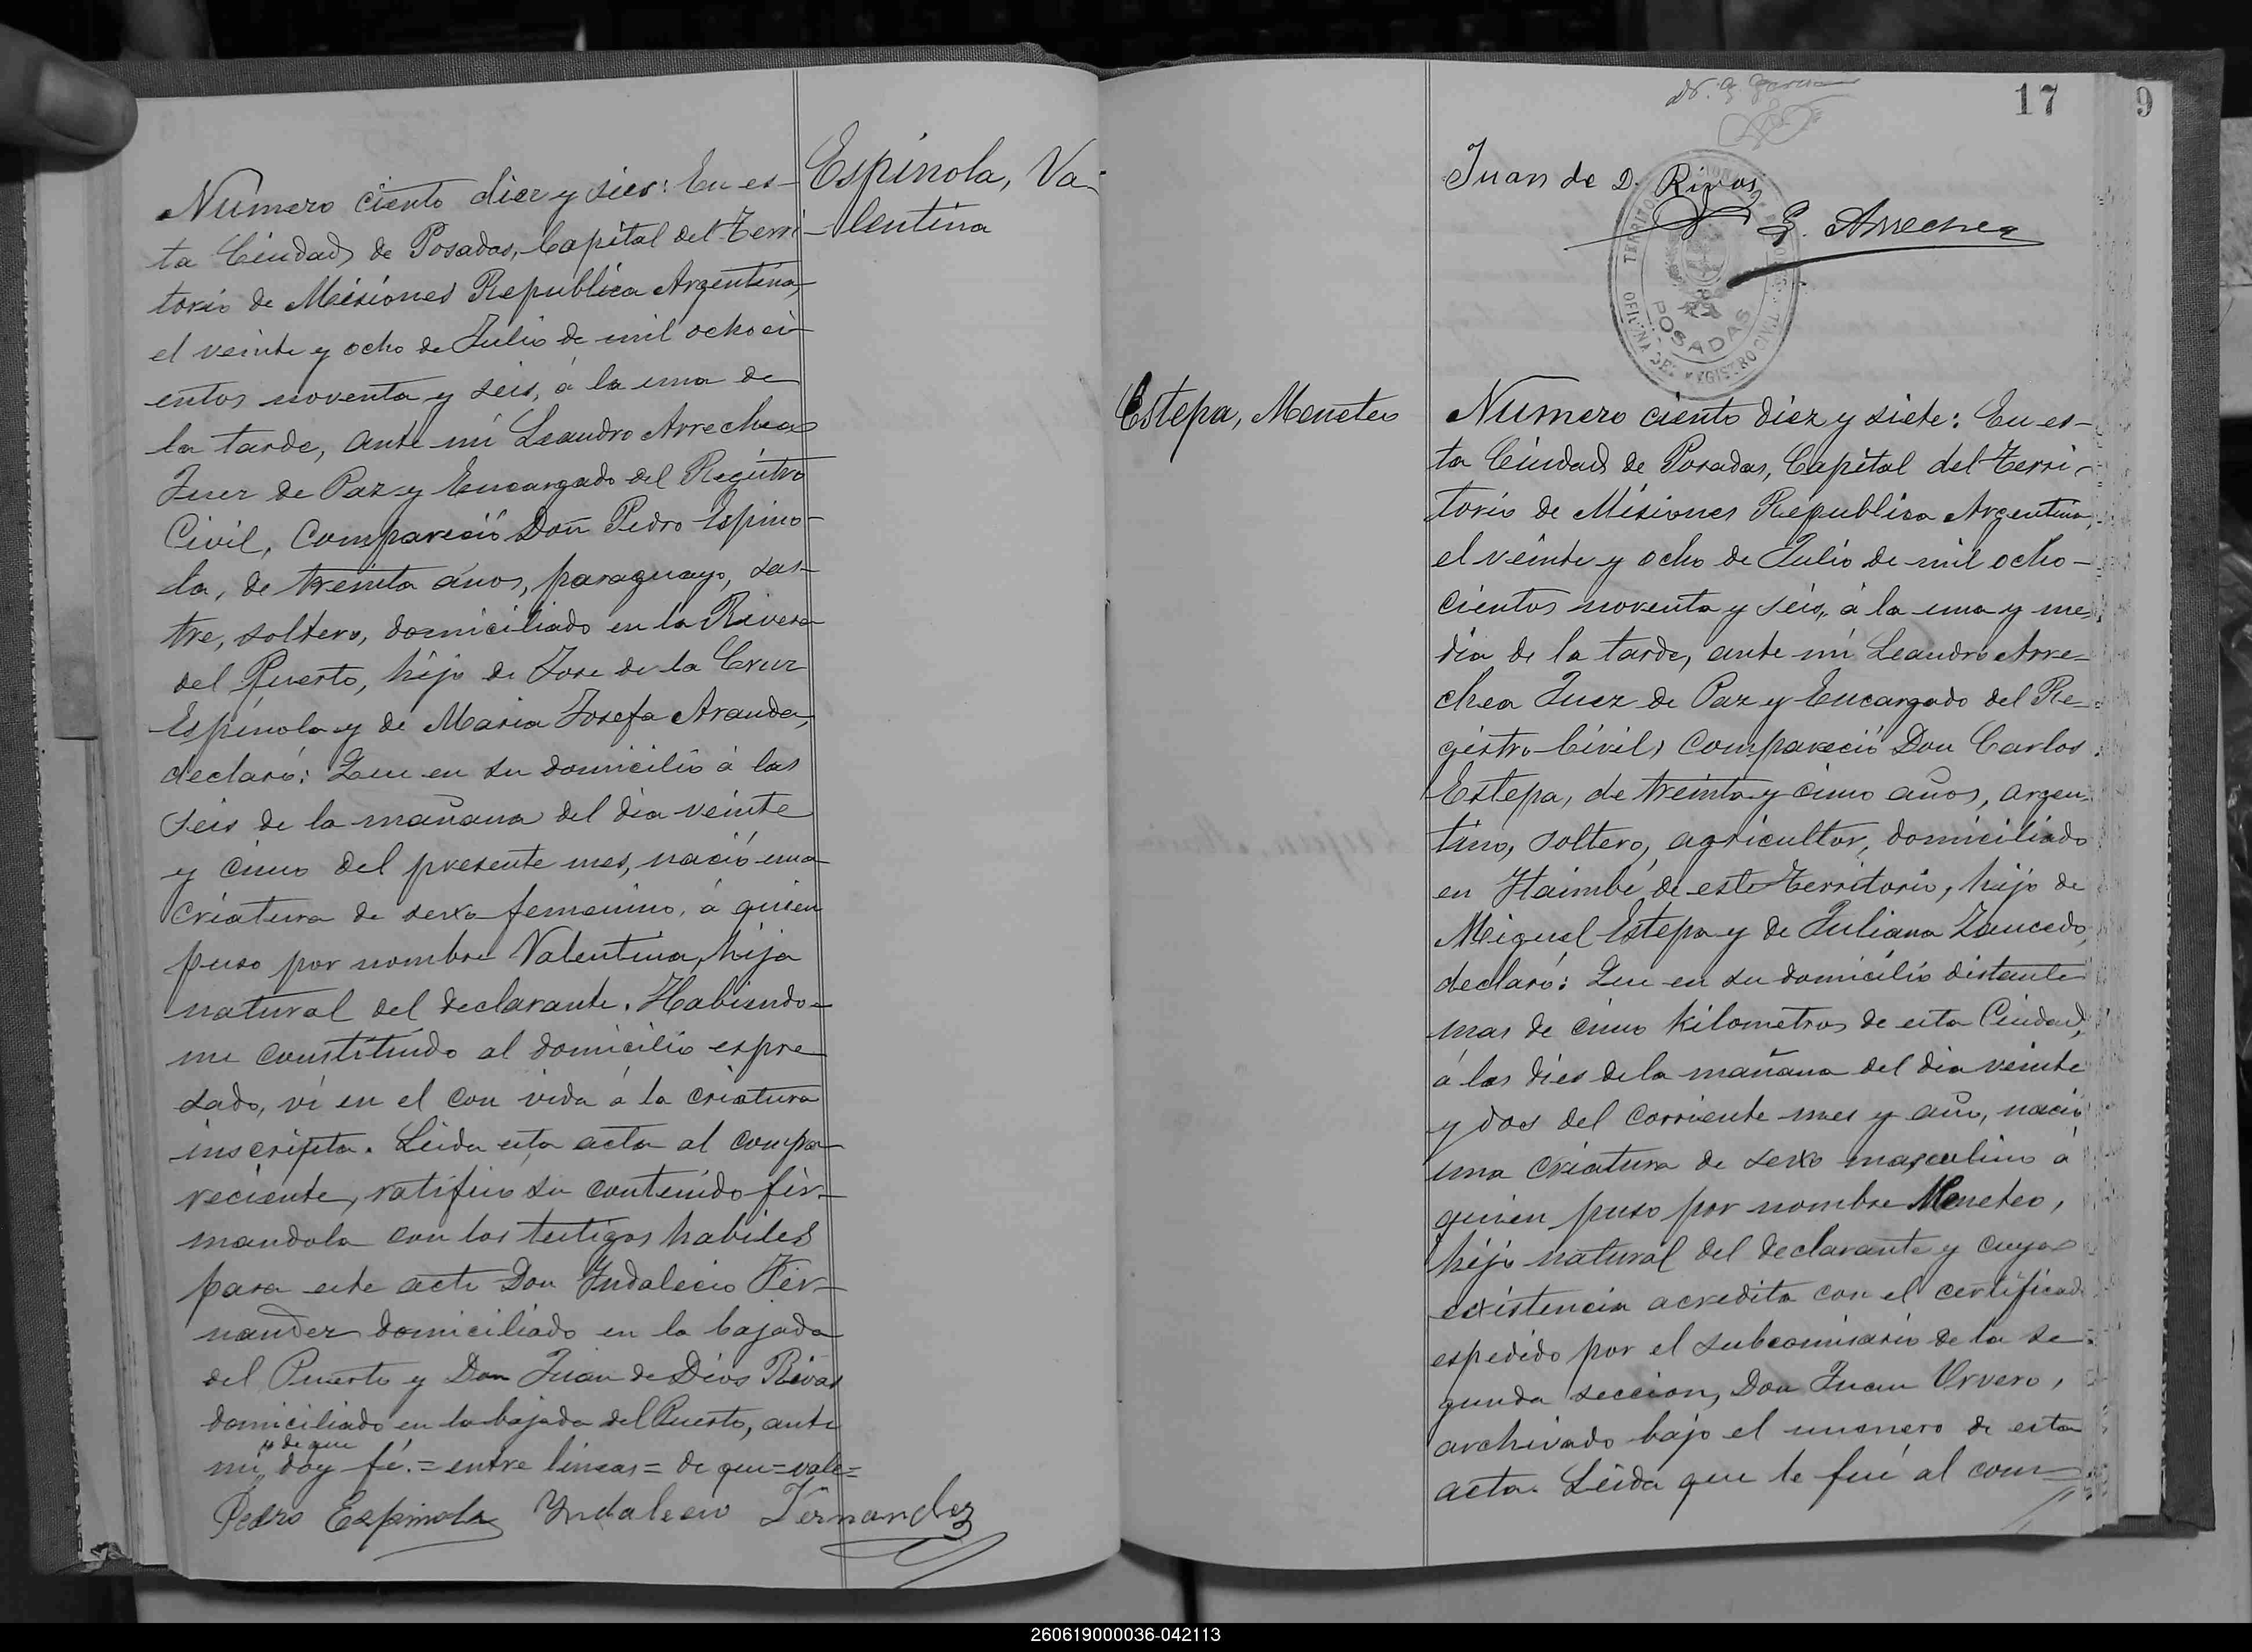 Espinola, Va-
-lentina
Número ciento diez y seis: En es-
ta Ciudad de Posadas, Capital del Terri-
torio de Misiones República Argentina,
el veinte y ocho de Julio de mil ochoci-
entos noventa y seis, á la una de
la tarde, ante mi Leandro Arrechea
Juez de Paz y Encargado del Registro
Civil, Compareció Don Pedro Espino-
la, de treinta años, paraguayo, sas-
tre, soltero, domiciliado en la Rivera
del Puerto, hijo de Jose de la Cruz
Espínola y de Maria Josefa Aranda,
declaró: Que en su domicilio á las
seis de la mañana del dia veinte
y cinco del presente mes, nació una
criatura de sexo femenino, á quien
puso por nombre Valentina, hija
natural del declarante. Habiendo-
me constituido al domicilio espre
sado, ví en el con vida á la criatura
inscripta. Leida esta acta al compa-
reciente, ratificó su contenido fir-
mandola con los testigos habiles
para este acto Don Indalecio Fer-
nandez domiciliado en la bajada
del Puerto y Don Juan de Dios Rivas
domiciliado en la bajada del Puerto, ante
de que
mi doy fé.=entre lineas=de que=vale=
Pedro Espinola Yndalecio Fernandez
17
9
Dr. G. Garcia
Juan de D. Rivas
L. Arrechea
POSADAS
OFICINA DEL REGISTRO CIVIL
Estepa, Meneteo
Número ciento diez y siete: En es-
ta Ciudad de Posadas, Capital del Terri-
torio de Misiones República Argentina,
el veinte y ocho de Julio de mil ocho-
cientos noventa y seis, á la una y me-
dia de la tarde, ante mí Leandro Arre-
chea Juez de Paz y Encargado del Re-
gistro Civil, compareció Don Carlos
Estepa, de treinta y cinco años, argen-
tino, soltero, agricultor, domiciliado
en Itaimbé de este Territorio, hijo de
Miguel Estepa y de Juliana Zaucedo,
declaró: Que en su domicilio distante
mas de cinco kilometros de esta Ciudad,
á las dies de la mañana del dia veinte
y dos del corriente mes y año, nació
una criatura de sexo masculino á
quien puso por nombre Meneteo,
hijo natural del declarante y cuya
existencia acredita con el certificado
espedido por el subcomisario de la se-
gunda seccion, Don Juan Orvero,
archivado bajo el numero de esta
acta. Leida que le fué al com-
260619000036-042113